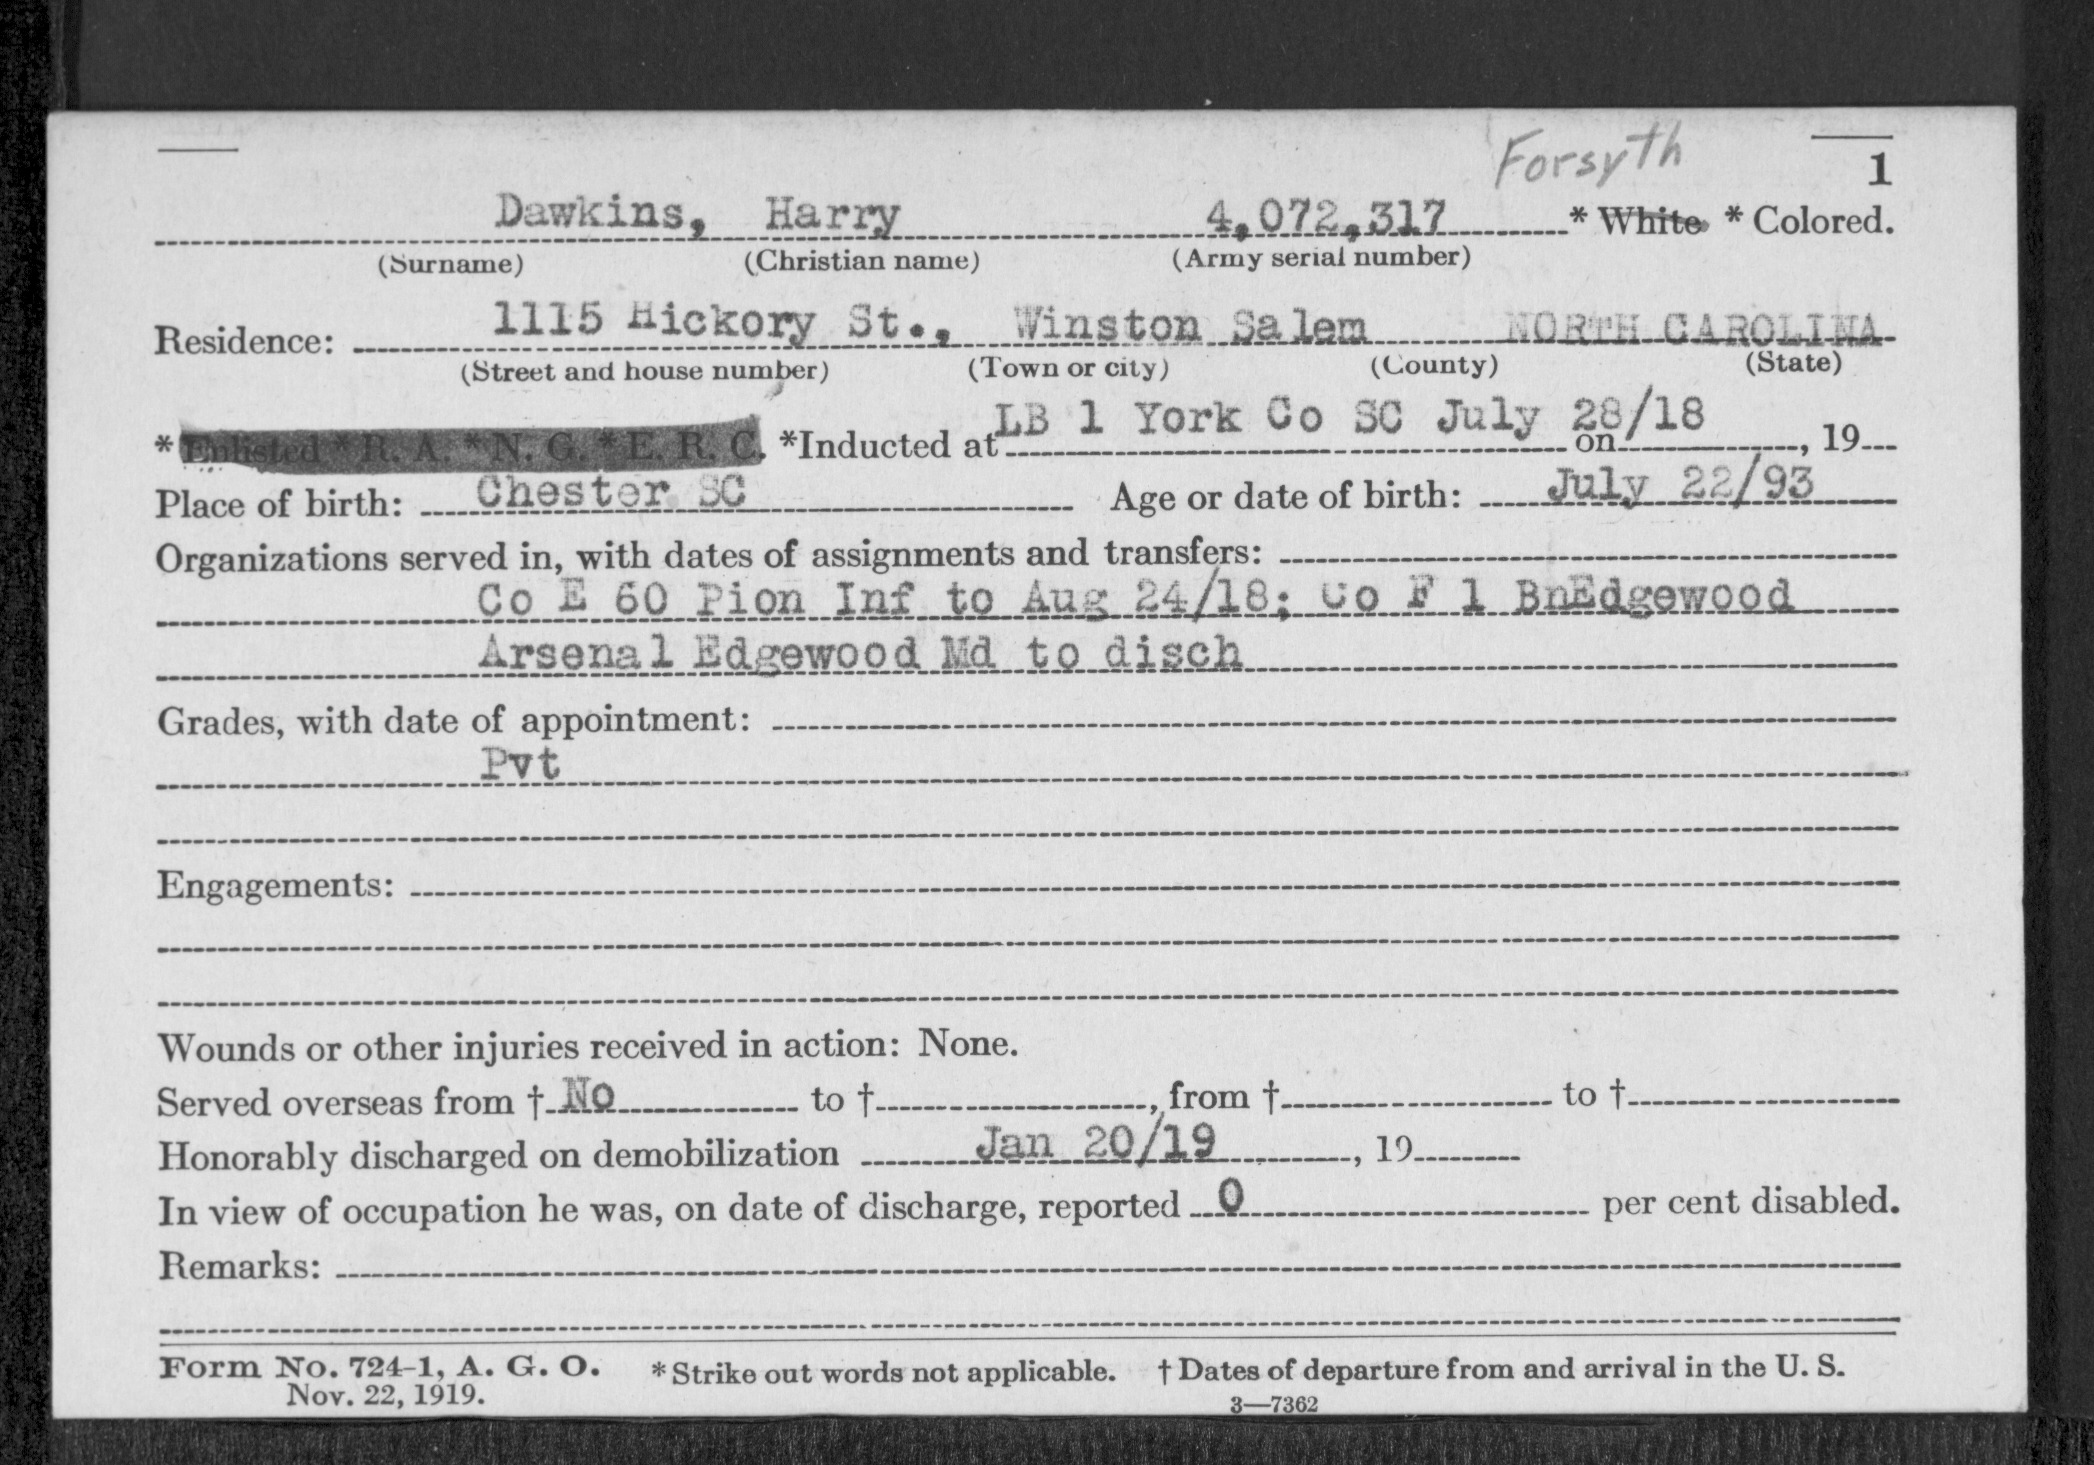 Forsyth
1
Dawkins, Harry 4,072,317 * White * Colored.
(Surname) (Christian name) (Army serial number)
1115 Hickory St., Winston Salem NORTH CAROLINA
Residence:
(Street and house number) (Town or city) (County) (State)
LB 1 York Co SC July 28/18
* Enlisted * R. A. * N. G. * E. R. C. *Inducted at on , 19
Place of birth: Chester SC Age or date of birth: July 22/93
Organizations served in, with dates of assignments and transfers:
Co E 60 Pion Inf to Aug 24/18; Co F 1 BnEdgewood
Arsenal Edgewood Md to disch
Grades, with date of appointment:
Pvt
Engagements:
Wounds or other injuries received in action: None.
Served overseas from † No to † , from † to †
Honorably discharged on demobilization Jan 20/19 , 19
In view of occupation he was, on date of discharge, reported 0 per cent disabled.
Remarks:
Form No. 724-1, A. G. O. * Strike out words not applicable. † Dates of departure from and arrival in the U. S.
Nov. 22, 1919. 3—7362